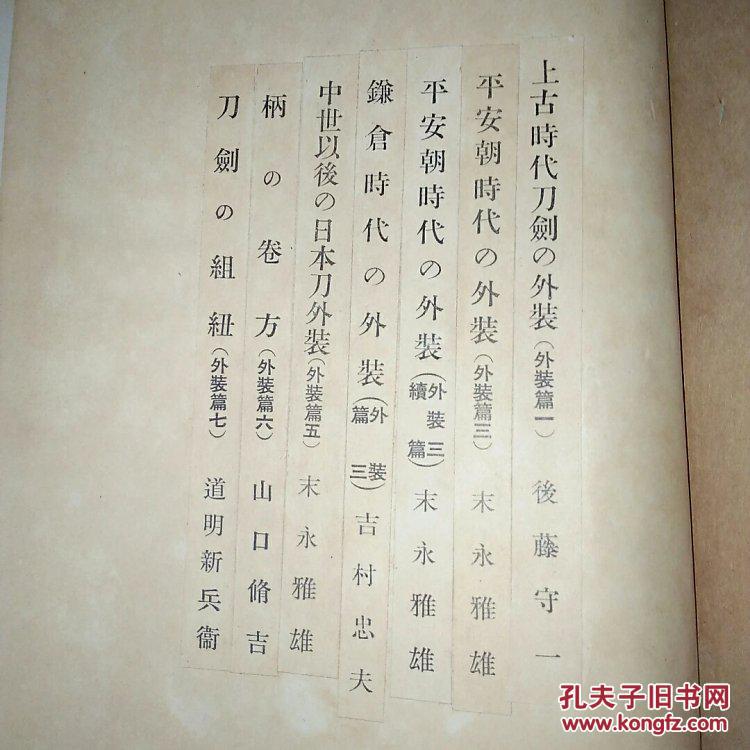 上古時代刀劍の外装(外装篇一)後藤守一
平安朝時代の外装(外装篇三)末永雅雄
平安朝時代の外装(外装三續篇)末永雅雄
鎌倉時代の外装(外装篇三)吉村忠夫
中世以後の日本刀外装(外装篇五)末永雅雄
柄の卷方(外装篇六)山口脩吉
刀劍の組紐(外装篇七)道明新兵衞
孔夫子旧书网
www.kongfz.com